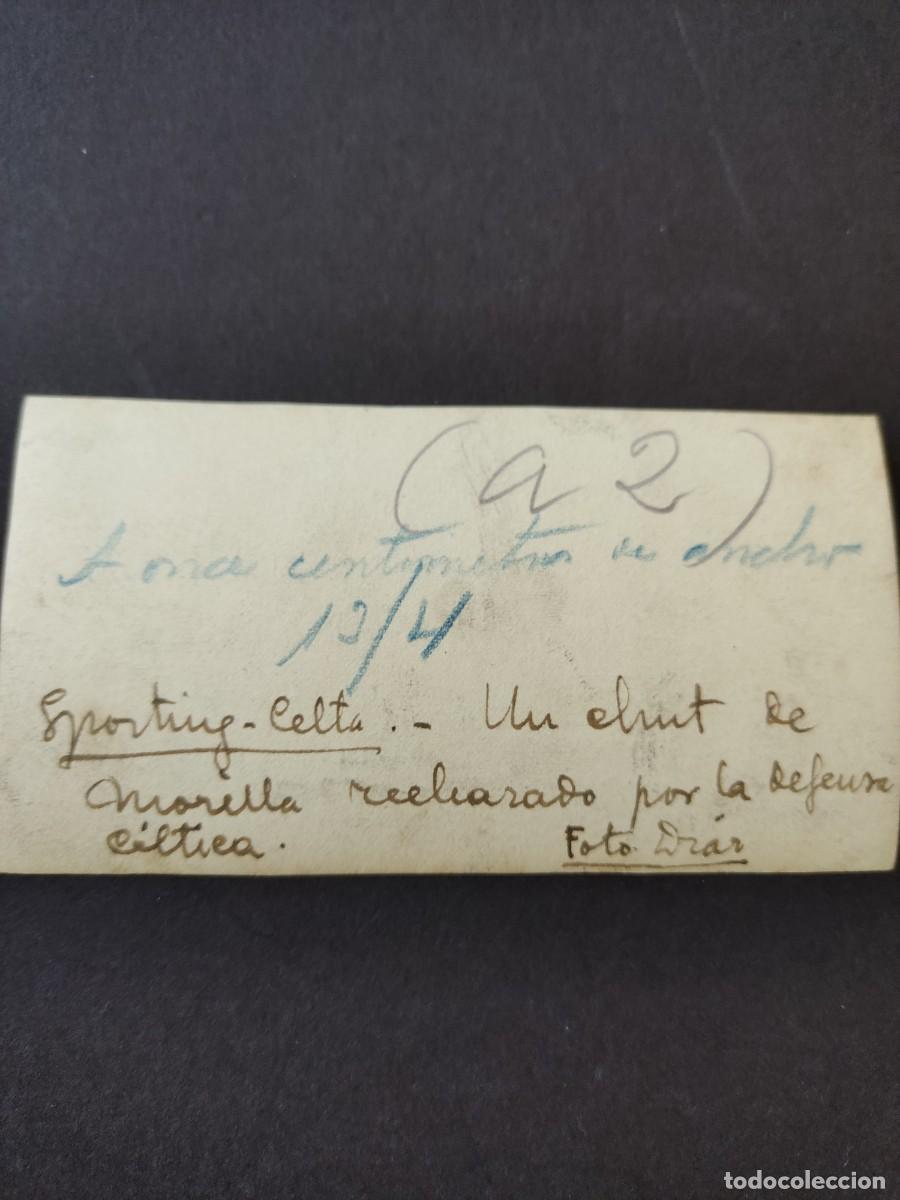 (a 2)
A once centímetros de ancho
13/4
Sporting-Celta. - Un chut de
Morilla rechazado por la defensa
Céltica.
Foto Diár
todocoleccion